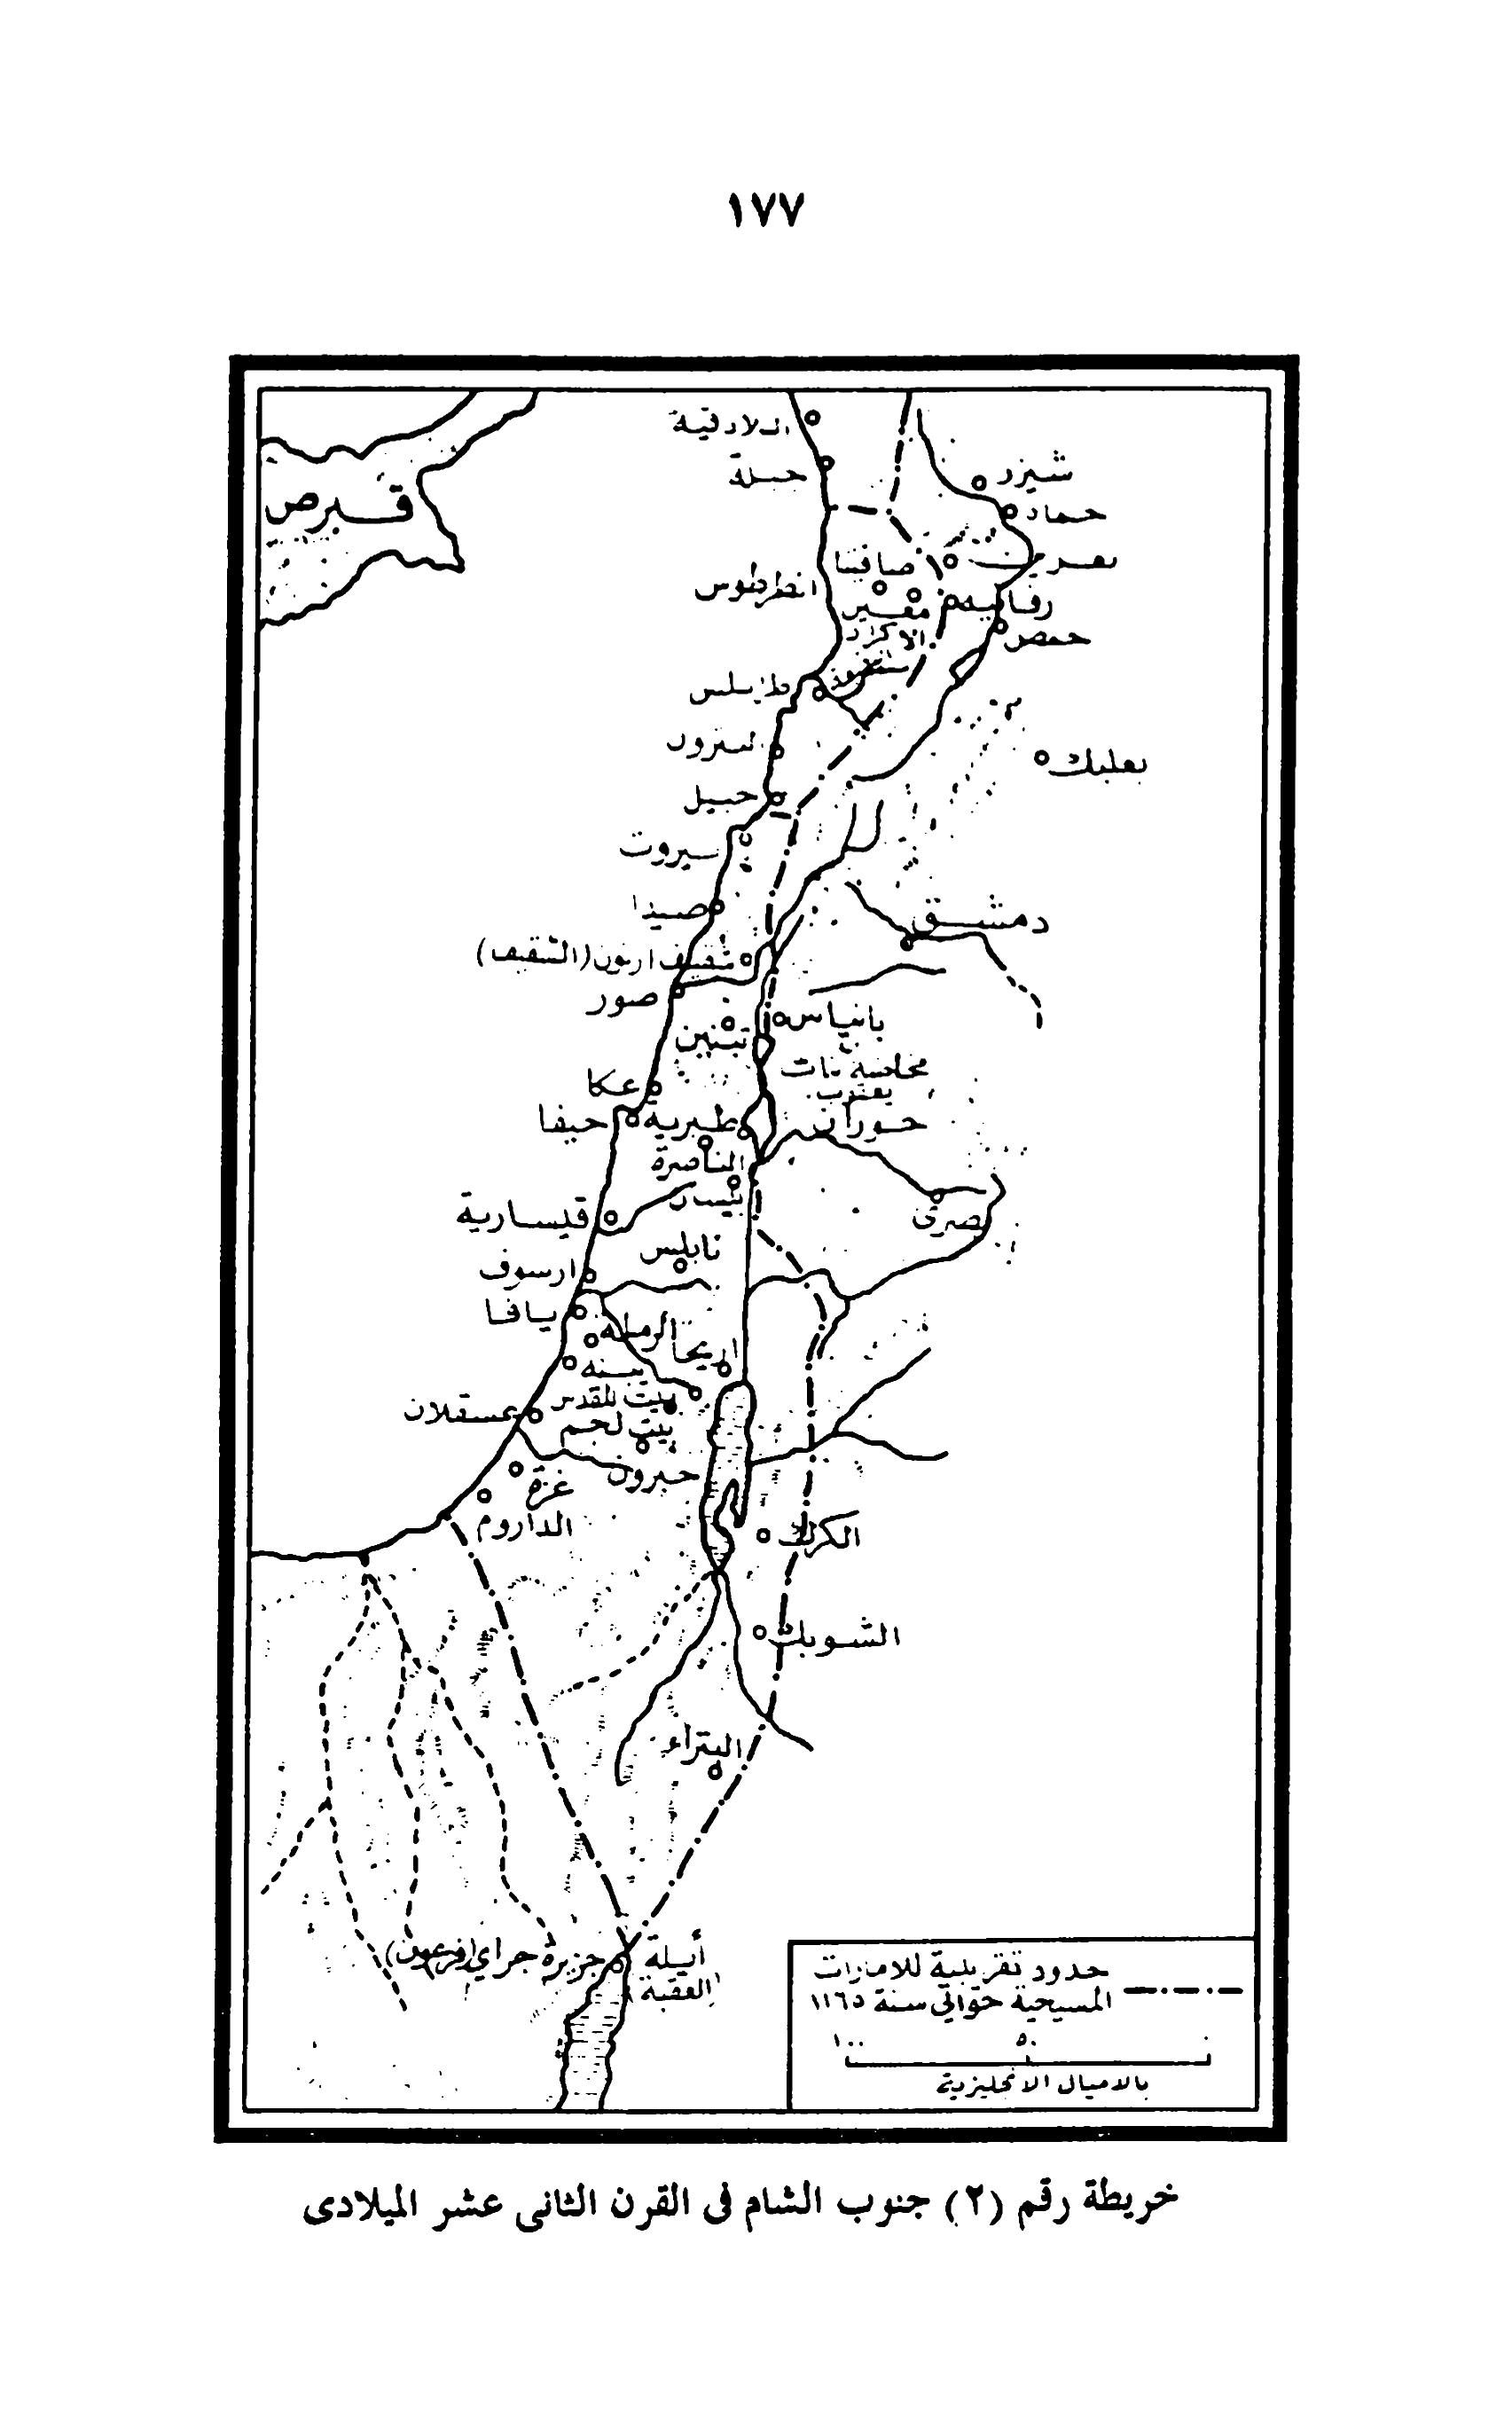 ١٧٧
اللادقية
شيزر
حماه
قبرص
صافيتا
انطرطوس
رفانيه
الاكراد
حمص
بعلبك
جبيل
بيروت
صيدا
دمشق
شقيف ارنون (الشقيف)
صور
بانياس
تبنين
مخاضة بنات
يعقوب
عكا
حيفا
طبرية
حوران
الناصرة
بيسان
قيسارية
بصرى
نابلس
ارسوف
يافا
الرملة
اريحا
يبنه
بيت المقدس
عسقلان
بيت لحم
حبرون
غزة
الداروم
الكرك
الشوبك
البتراء
أيلة
العقبة
جزيرة جراي (فرعون)
حدود تقريبية للامارات
المسيحية حوالي سنة ١١٦٥
١٠٠ ٥٠ ٠
بالاميال الانجليزية
خريطة رقم (٢) جنوب الشام فى القرن الثانى عشر الميلادى